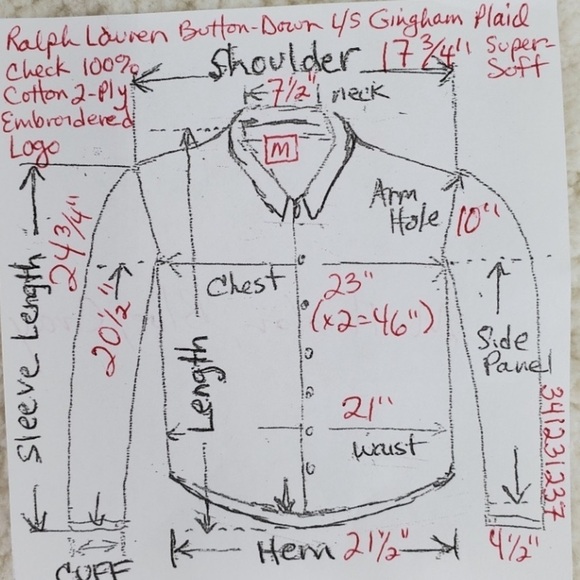 Ralph Lauren Button-Down L/S Gingham Plaid
Check 100%
Cotton 2-Ply
Embroidered
Logo
Super-
Soft
Shoulder 17 3/4"
7 1/2" neck
M
Arm
Hole 10"
Sleeve Length 24 3/4"
20 1/2"
Chest 23"
(x2=46")
Length
Side
Panel
21"
Waist
341231237
Cuff
Hem 21 1/2"
4 1/2"